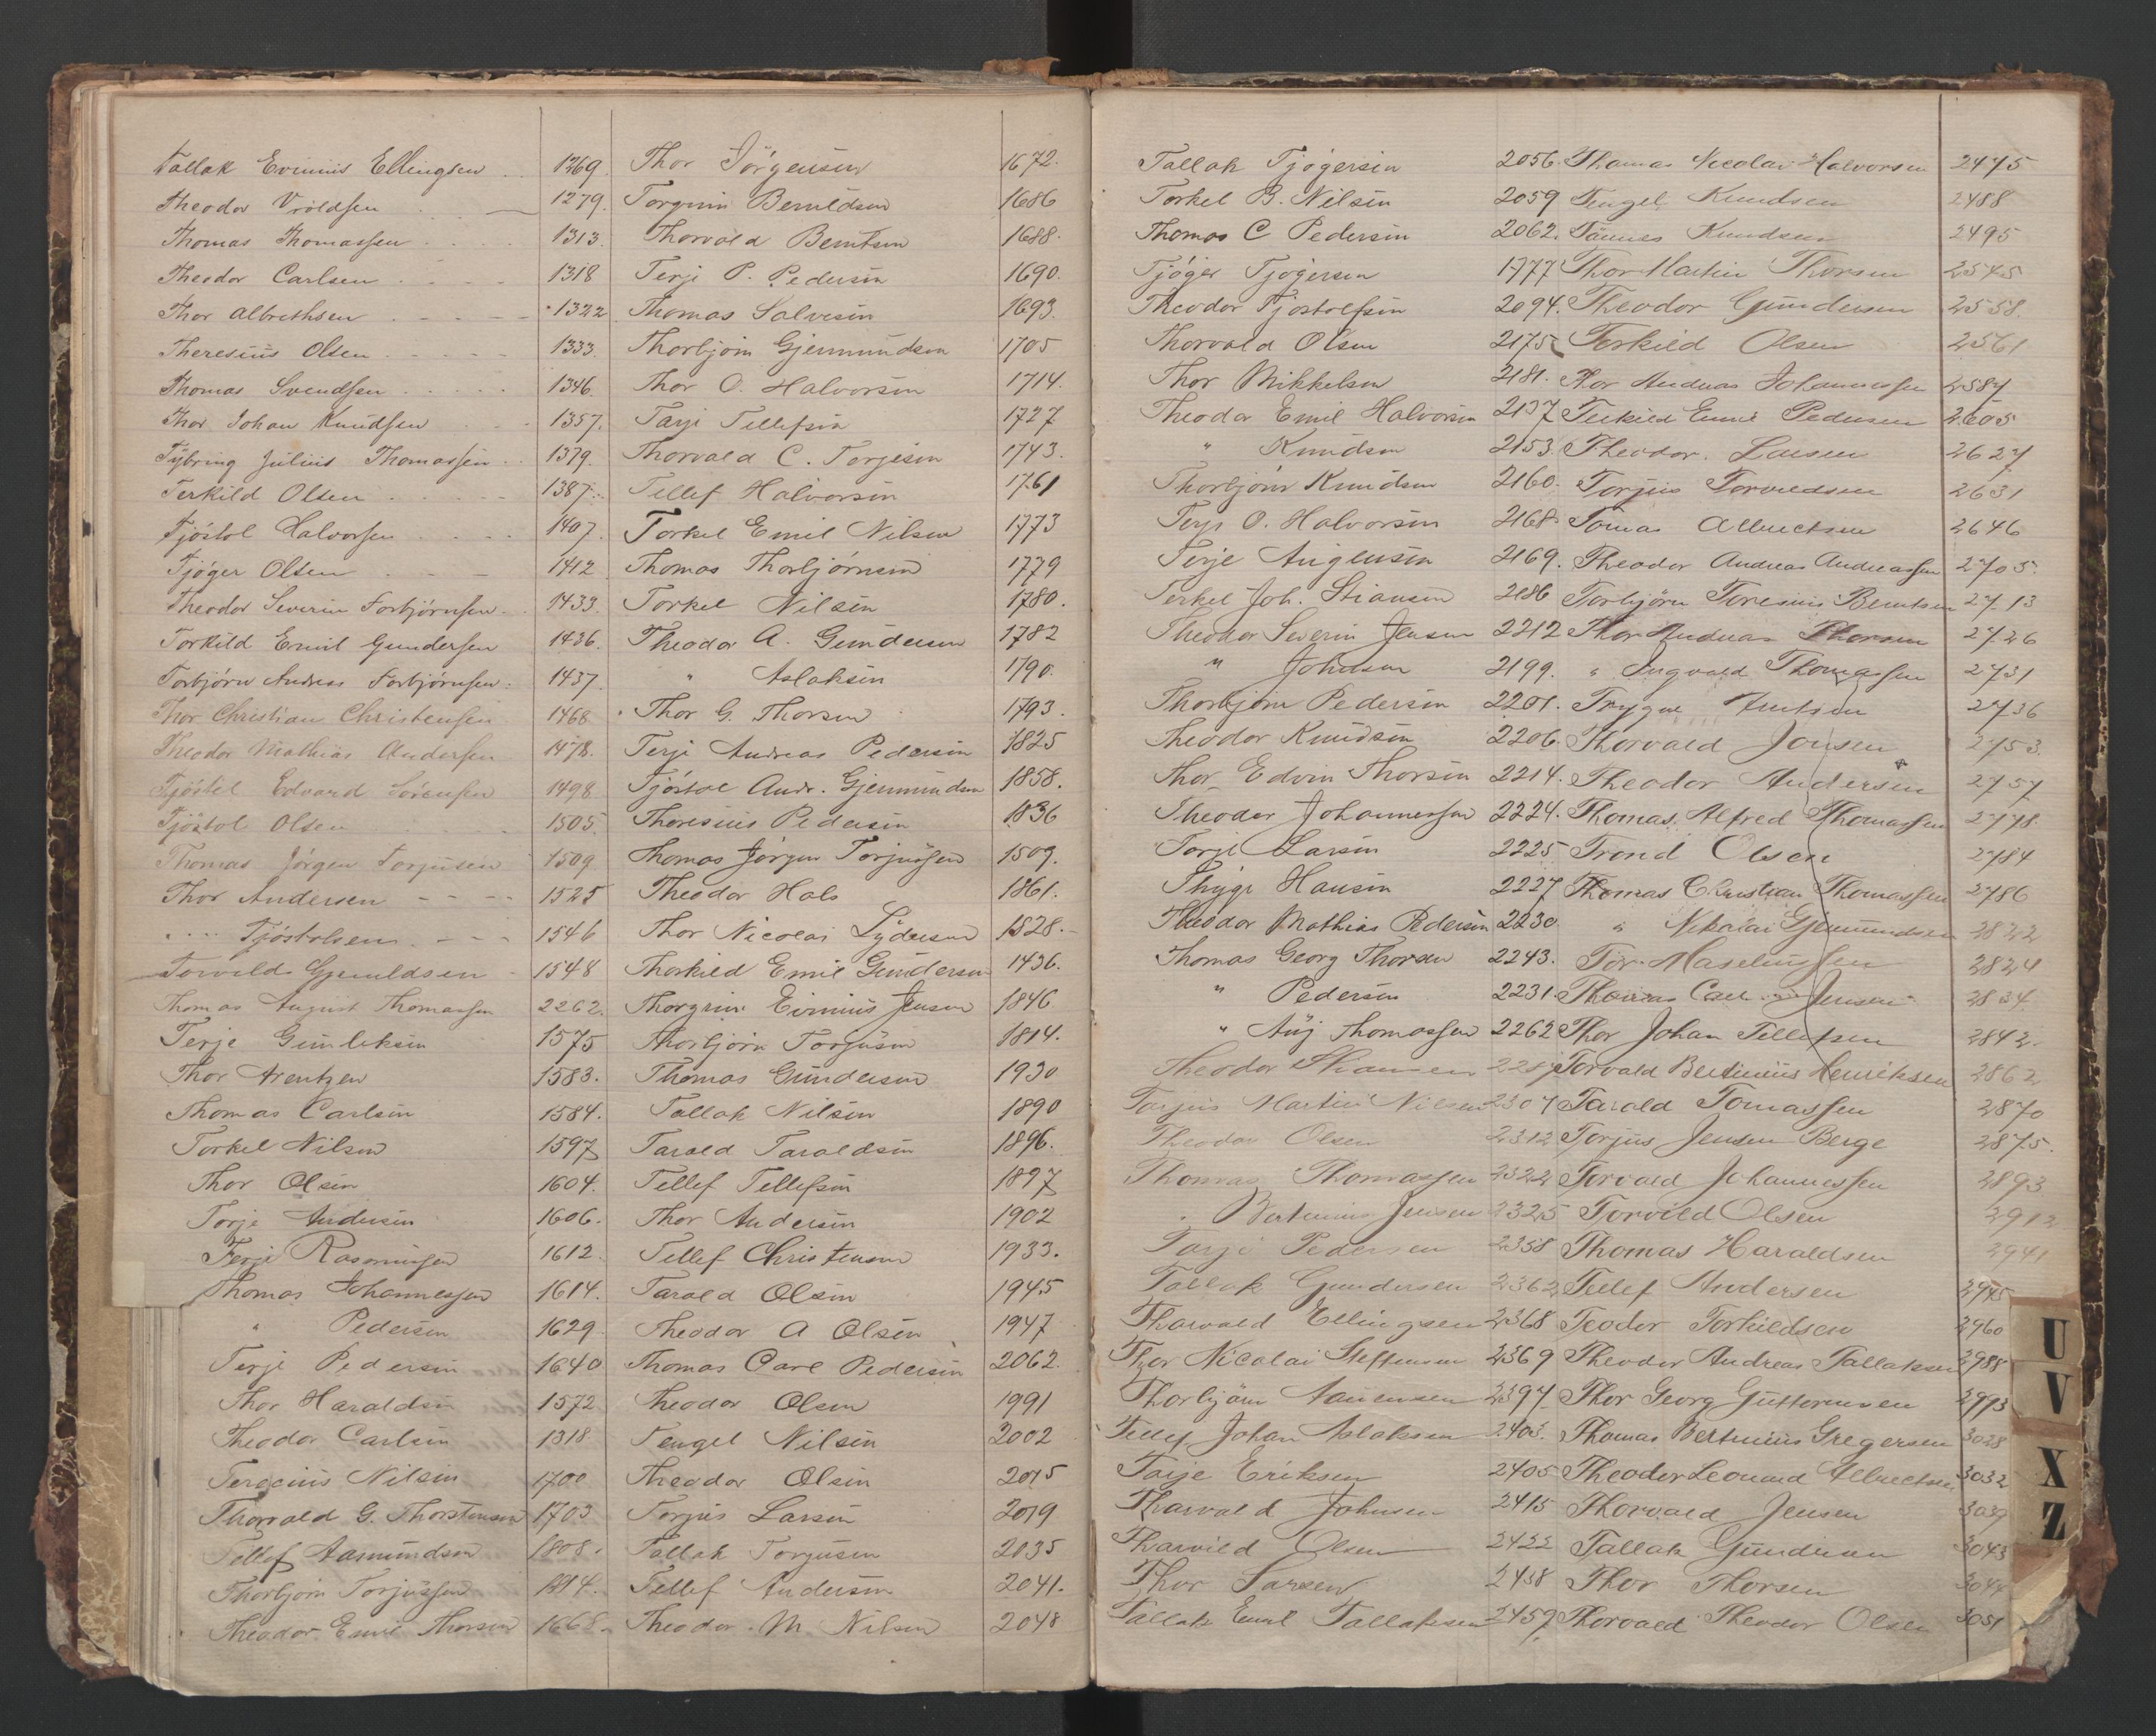 Tallak Evinius Ellingsen 1269
Theodor Vroldsen 1279.
Thomas Thomassen 1313.
Theodor Carlsen 1318
Thor Albrethsen 1322
Theresius Olsen 1333.
Thomas Svendsen 1346.
Thor Johan Knudsen 1357.
Tybring Julius Thomassen 1379.
Terkild Olsen 1387.
Tjøstol Halvorsen 1407.
Tjøger Olsen 1412
Theodor Severin Torbjørnsen 1433.
Torkild Emil Gundersen 1436.
Torbjørn Andreas Torbjørnsen 1437.
Thor Christian Christensen 1468
Theodor Mathias Andersen 1478.
Tjöstel Edvard Sörensen 1498
Tjöstol Olsen 1505.
Thomas Jörgen Torjusen 1509
Thor Andersen 1525
" Tjöstolsen 1546
Torvild Gjeruldsen 1548
Thomas August Thomassen 2262.
Terje Gunleksen 1575
Thor Arentzen 1583.
Thomas Carlsen 1584.
Torkel Nilsen 1597
Thor Olsen 1604.
Torje Andersen 1606.
Terje Rasmussen 1612.
Thomas Johannessen 1614.
" Pedersen 1629
Terje Pedersen 1640
Thor Haraldsen 1572
Theodor Carlsen 1318
Terecius Nilsen 1700
Thorvald G. Thorstensen 1703
Tellef Aamundsen 1808.
Thorbjørn Torjussen 1814.
Theodor Emil Thorsen 1668.
Thor Jörgensen 1672.
Torgrim Beruldsen 1686
Thorvald Berntsen 1688.
Terje P. Pedersen 1690.
Thomas Salvesen 1693.
Thorbjørn Gjermundsen 1705
Thor O. Halvorsen 1714.
Tarje Tellefsen 1727
Thorvald C. Torjesen 1743.
Tellef Halvorsen 1761
Torkel Emil Nilsen 1773
Thomas Thorbjørnsen 1779
Torkel Nilsen 1780.
Theodor A. Gundersen 1782
" Aslaksen 1790.
Thor G. Thorsen 1793.
Terje Andreas Pedersen 1825
Tjöstol Andr. Gjermundsen 1858.
Theresius Pedersen 1836
Thomas Jörgen Torjussen 1509.
Theodor Hals 1861.
Thor Nicolai Lydersen 1828.
Thorkild Emil Gundersen 1436.
Thorgrim Evinius Jensen 1846
Thorbjørn Torjusen 1814.
Thomas Gundersen 1930
Tallak Nilsen 1890
Tarald Taraldsen 1896.
Tellef Tellefsen 1897
Thor Andersen 1902
Tellef Christensen 1933.
Tarald Olsen 1945
Theodor A Olsen 1947
Thomas Carl Pedersen 2062.
Theodor Olsen 1991
Tengel Nilsen 2002
Theodor Olsen 2015
Torjus Larsen 2019
Tallak Torjusen 2035
Tellef Andersen 2041.
Theodor M Nilsen 2048
Tallak Tjøgersen 2056.
Torkel B. Nilsen 2059
Thomas C Pedersen 2062.
Tjøger Tjøgersen 1777
Theodor Tjostolfsen 2094.
Thorvald Olsen 2175
Thor Mikkelsen 2181.
Theodor Emil Halvorsen 2137
" Knudsen 2153.
Thorbjørn Knudsen 2160.
Terje O. Halvorsen 2168
Terje Augensen 2169.
Terkel Joh. Stiansen 2186
Theodor Severin Jensen 2212
" Johnsen 2199.
Thorbjørn Pedersen 2201.
Theodor Knudsen 2206.
Thor Edvin Thorsen 2214.
Theodor Johannessen 2224.
Torje Larsen 2225
Thyge Hansen 2227
Theodor Mathias Pedersen 2230.
Thomas Georg Thorsen 2243.
" Pedersen 2231.
" Aug Thomassen 2262
Theodor
Torjus Martin Nielsen 2307
Theodor Olsen 2312
Thomas Thomassen 2322
" Bertinius Jensen 2325
Torje Pedersen 2358
Tallak Gundersen 2362
Thorvald Ellingsen 2368
Thor Nicolai Steffensen 2369
Thorbjørn 2397
Tellef Johan Aslaksen 2403.
Tarje Eriksen 2405
Tharvald Johnsen 2415
Tharvild Olsen 2422
Thor Larsen 2438
Tallak Emil Tallaksen 2459
Thomas Nicolai Halvorsen 2475
Tengel Knudsen 2488
Tønnes Knudsen 2495
Thor Martin Thorsen 2545
Theodor Gundersen 2558.
Torkild Olsen 2561
Thor Andreas Johannessen 2587
Terkild Emil Pedersen 2605
Theodor Larsen 2627
Torjus Torvildsen 2631
Tomas Albrectsen 2646
Theodor Andreas Andreassen 2705.
Torbjørn Toresius Berntsen 2713
Thor Andreas Thorsen 2726
" Ingvald Thomassen 2731
Trygve Arntsen 2736
Thorvald Jonsen 2753.
Theodor Andersen 2757
Thomas Alfred Thomassen 2778.
Trond Olsen 2784
Thomas Christian Thomassen 2786
" Nikolai Gjermundsen 2822
Tor 2824
Thomas Carl Jensen 2834.
Thor Johan Tellefsen 2842.
Torvald Bertinius Henriksen 2862
Tarald Tomassen 2870
Torjus Jensen Berge 2875.
Torvald Johannessen 2893
Torvild Olsen 2912
Thomas Haraldsen 2941
Tellef Andersen 2945
Teodor Torkildsen 2960
Theodor Andreas Tallaksen 2988
Thor Georg Guttormsen 2993
Thomas Bertinius Gregersen 3028
Theodor Leonard Albrectsen 3032
Thorvald Jensen 3039
Tallak Gundersen 3043
Thor Thorsen 3044
Thorvald Theodor Olsen 3051
U
V
X
Z